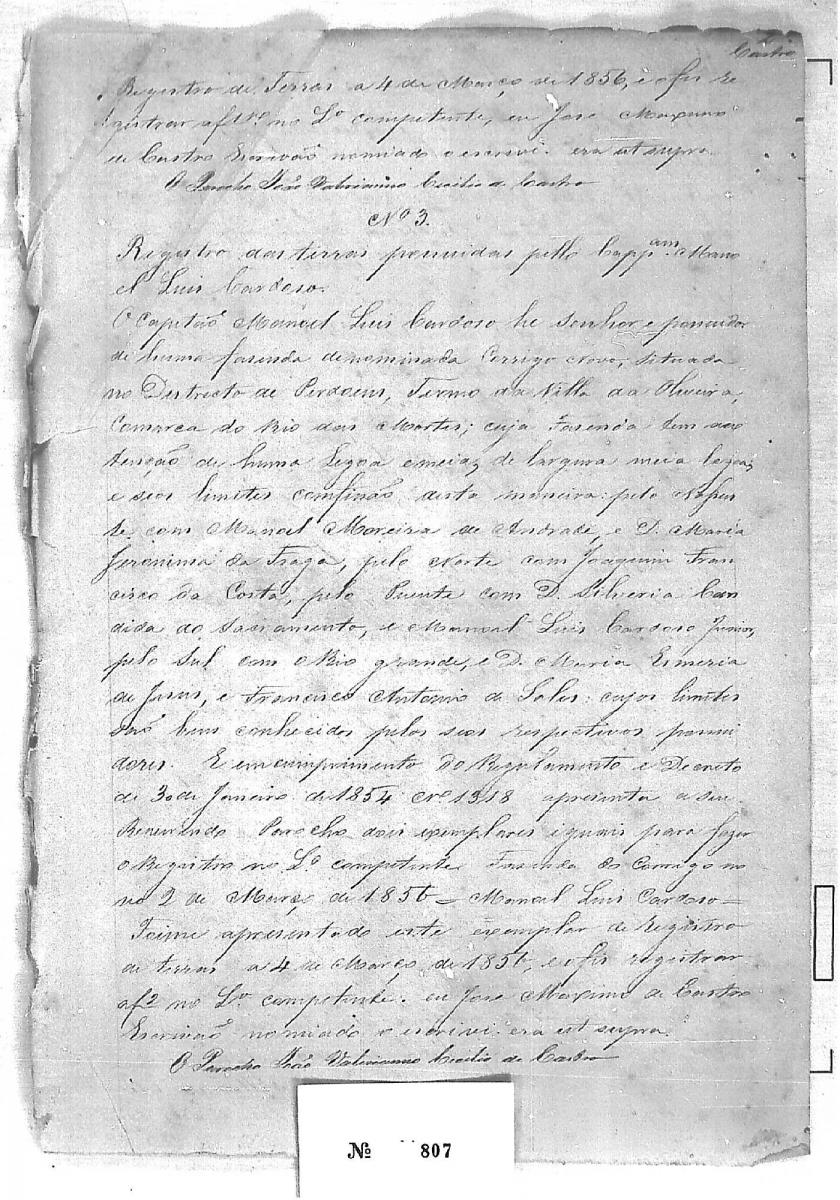 Castro
Registro de Terras a 4 de Março de 1856, e o fis re
gistrar a f 1 vº no Lº competente, eu Jose Maximo
de Castro Escrivaõ nomiado o escrevi. era ut supra.
O Parocho João Valerianno Cecilio de Castro
Nº 3.
Registro das terras possuidas pello Cappam. Mano
el Luis Cardoso.
O Capitaõ Manoel Luis Cardoso he senhor e possuidor
de huma fasenda denominada Corrigo novo, situada
no Districto de Perdoens, Termo da Villa da Oliveira,
Comarca do Rio das Mortes; cuja Fasenda tem de ex
tenção de huma Legoa e meia, de largura meia legoa;
e seos limites confinão desta maneira: pelo
te com Manoel Moreira de Andrade, e D. Maria
Jeronima da Fraga, pelo Norte com Joaquim Fran
cisco da Costa, pelo Puente com D. Silveria Can
dida do Sacramento, e Manoel Luis Cardoso Junior,
pelo Sul com o Rio grande, e D. Maria Esmeria
de Jesus, e Francisco Antonio de Sales: cujos limites
saõ bem conhecidos pelos seos respectivos possui
dores. E em cumprimento do Regulamento e Decreto
de 30 de Janeiro de 1854 Nº 1318 apresenta a seu
Reverendo Parocho dois exemplares iguais para fazer
o Registro no Lº competente. Fasenda do Corrigo no
vo 2 de Março de 1856 = Manoel Luis Cardoso =
Foi me apresentado este exemplar de registro
de terras a 4 de Março de 1856, e o fis registrar
a f 2 no Lº competente. eu Jose Maximo de Castro
Escrivaõ nomiado o escrevi era ut supra.
O Parocho João Valerianno Cecilio de Castro
№ 807